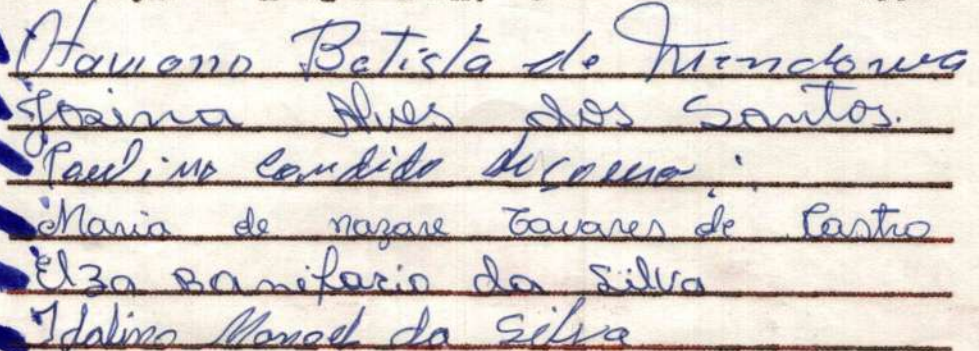 Otaviano Batista de Mendonca
Josina Alves dos Santos.
Paulino Candido
Maria de nazare Tavares de Castro
Elza Banifacio da Silva
Idalino Manoel da Silva